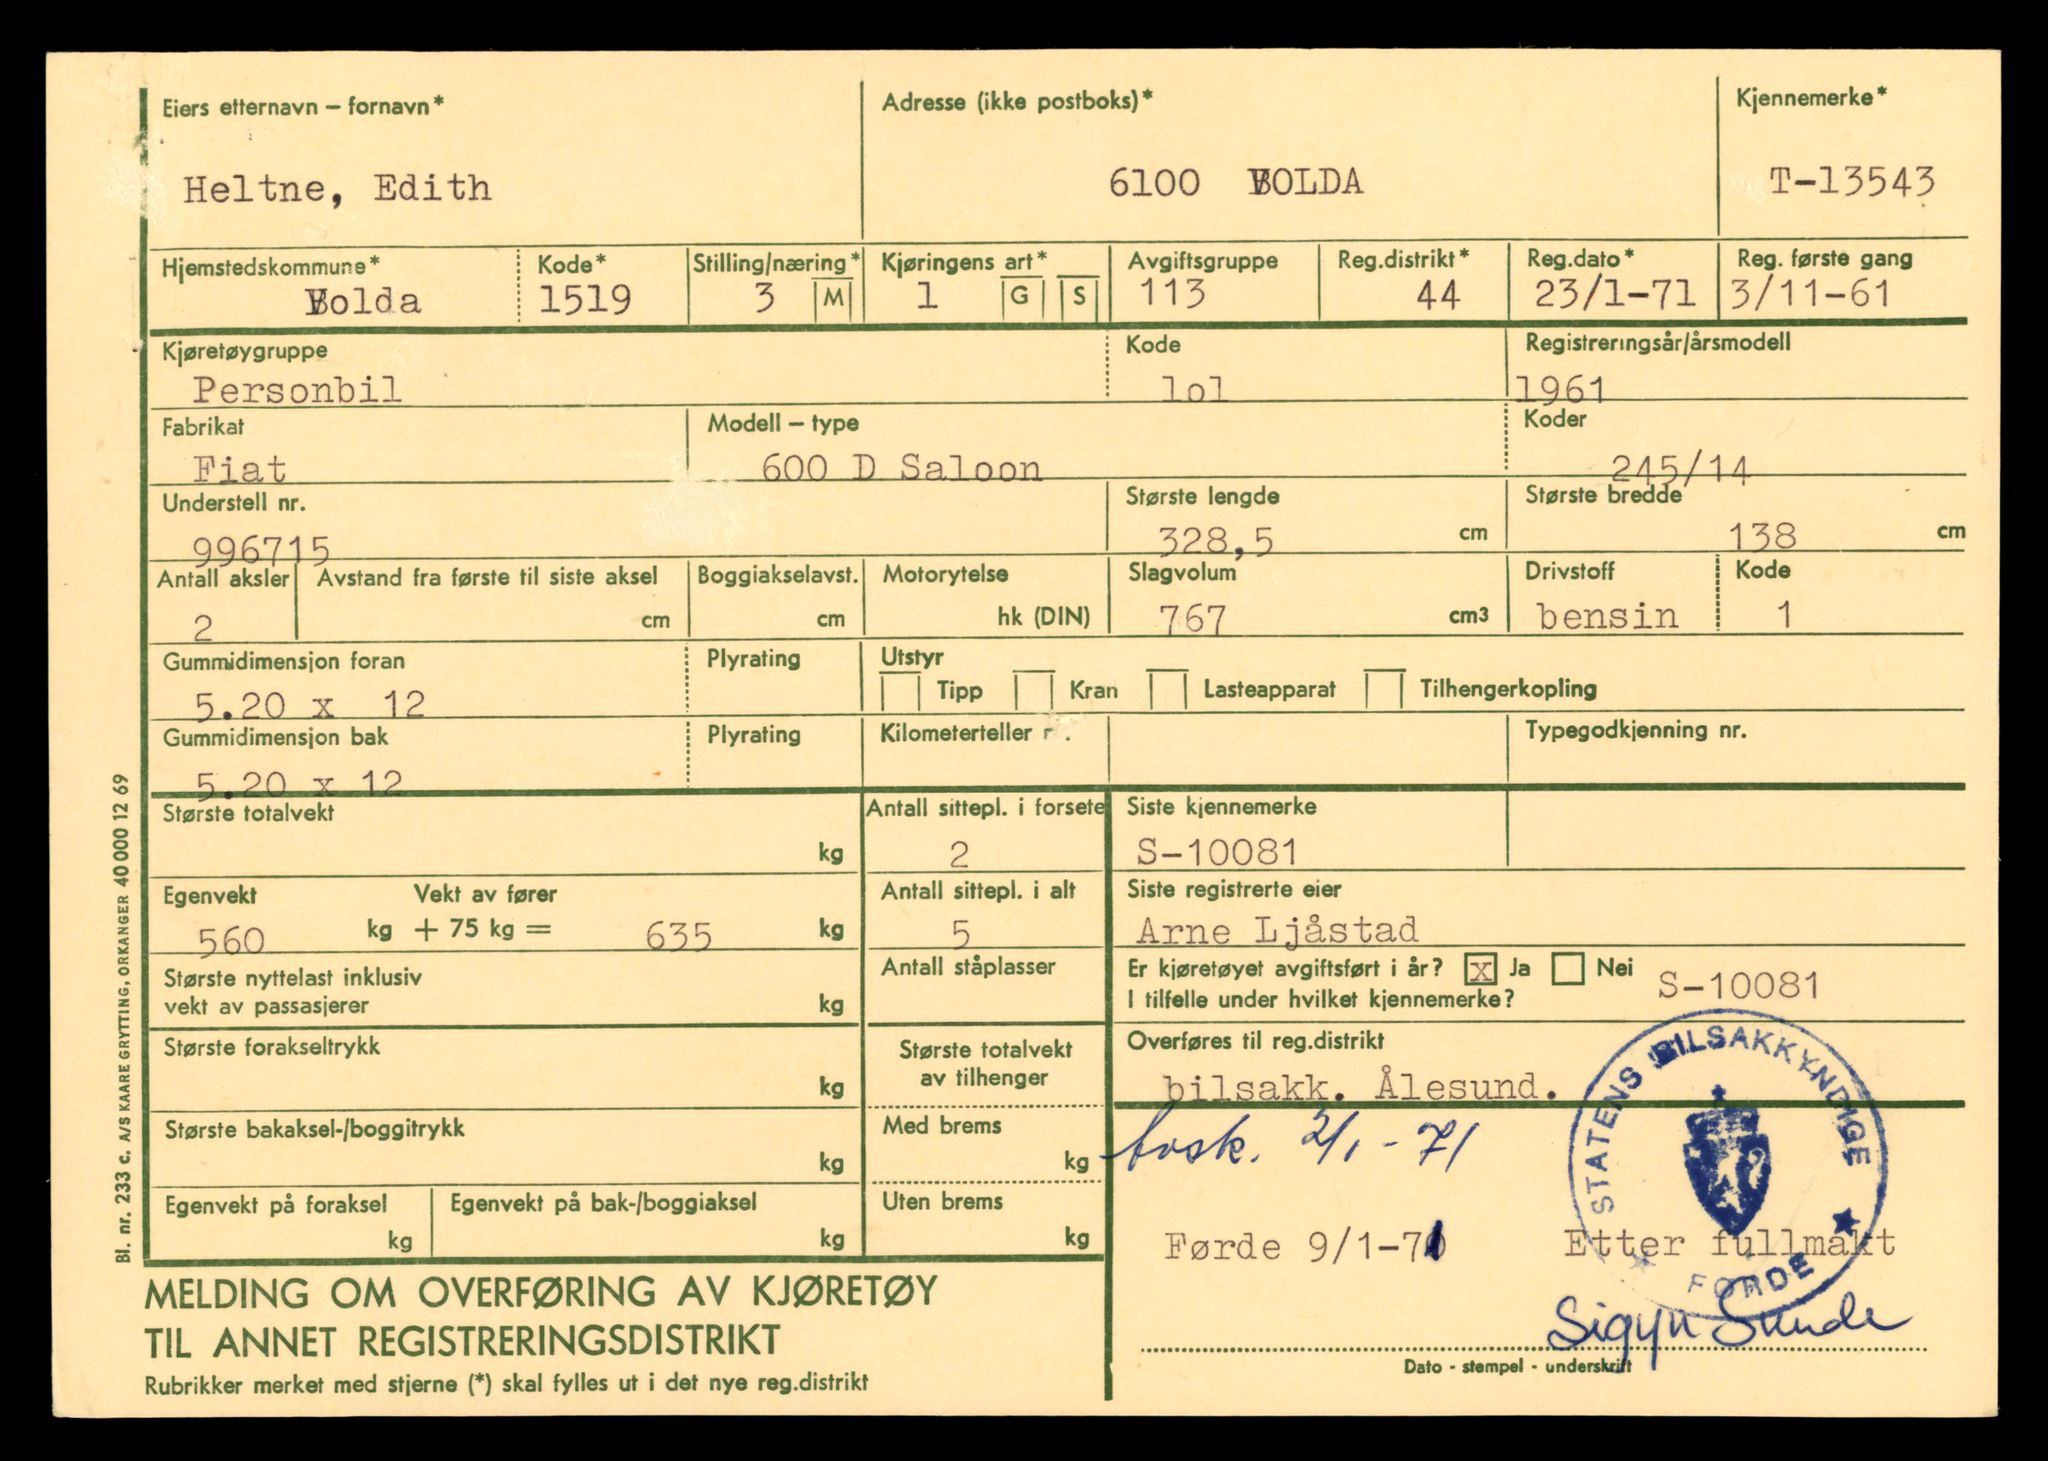 Eiers etternavn – fornavn* Adresse (ikke postboks)* Kjennemerke*
Heltne, Edith 6100 VOLDA T-13543
Hjemstedskommune* Kode* Stilling/næring* Kjøringens art* Avgiftsgruppe Reg.distrikt* Reg.dato* Reg. første gang
Volda 1519 3 M 1 G S 113 44 23/1-71 3/11-61
Kjøretøygruppe Kode Registreringsår/årsmodell
Personbil lol 1961
Fabrikat Modell – type Koder
Fiat 600 D Saloon 245/14
Understell nr. Største lengde Største bredde
996715 328,5 cm 138 cm
Antall aksler Avstand fra første til siste aksel Boggiakselavst. Motorytelse Slagvolum Drivstoff Kode
2 cm cm hk (DIN) 767 cm3 bensin 1
Gummidimensjon foran Plyrating Utstyr
5.20 x 12 Tipp Kran Lasteapparat Tilhengerkopling
Gummidimensjon bak Plyrating Kilometerteller Typegodkjenning nr.
5.20 x 12
Største totalvekt Antall sittepl. i forsete Siste kjennemerke
kg 2 S-10081
Egenvekt Vekt av fører Antall sittepl. i alt Siste registrerte eier
560 kg + 75 kg = 635 kg 5 Arne Ljåstad
Største nyttelast inklusiv Antall ståplasser Er kjøretøyet avgiftsført i år? x Ja Nei
vekt av passasjerer kg I tilfelle under hvilket kjennemerke? S-10081
Største forakseltrykk Største totalvekt Overføres til reg.distrikt
kg av tilhenger bilsakk. Ålesund.
Største bakaksel-/boggitrykk Med brems
kg kg 2/1-71
Egenvekt på foraksel Egenvekt på bak-/boggiaksel Uten brems
kg kg kg Førde 9/1-71 Etter fullmakt
STATENS BILSAKKYNDIGE
FØRDE
MELDING OM OVERFØRING AV KJØRETØY
TIL ANNET REGISTRERINGSDISTRIKT
Sigyn Sunde
Rubrikker merket med stjerne (*) skal fylles ut i det nye reg.distrikt
Dato - stempel - underskrift
Bl. nr. 233 c. A/S KAARE GRYTTING, ORKANGER 40 000 12 69